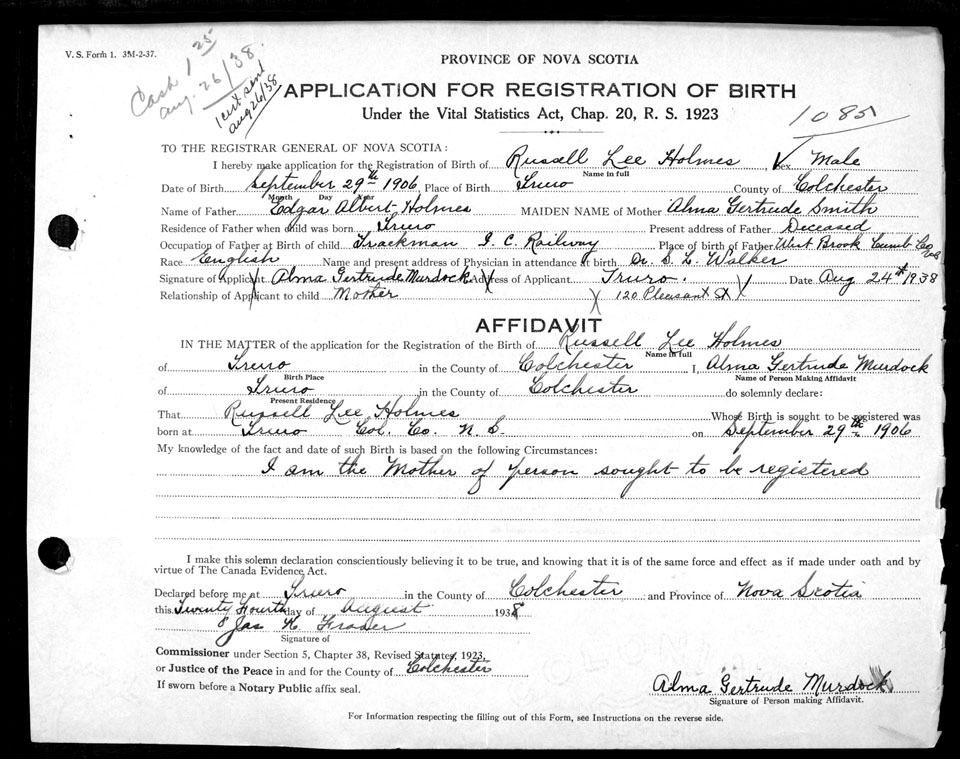 V. S. Form 1. 3M-2-37.
Cash 1 25
Aug. 26/38.
1 cert. send
aug 26/38
PROVINCE OF NOVA SCOTIA
APPLICATION FOR REGISTRATION OF BIRTH
Under the Vital Statistics Act, Chap. 20, R. S. 1923
10851
TO THE REGISTRAR GENERAL OF NOVA SCOTIA:
I hereby make application for the Registration of Birth of Russell Lee Holmes, Sex Male
Name in full
Date of Birth September 29th 1906, Place of Birth Truro County of Colchester
Month Day Year
Name of Father Edgar Albert Holmes MAIDEN NAME of Mother Alma Gertrude Smith
Residence of Father when child was born Truro Present address of Father Deceased
Occupation of Father at Birth of child Trackman I. C. Railway Place of birth of Father West Brook Cumb. Co.
Race English Name and present address of Physician in attendance at birth Dr. S. L. Walker
Signature of Applicant Alma Gertrude Murdock Address of Applicant Truro. Date Aug 24th 1938
Relationship of Applicant to child Mother 120 Pleasant St
AFFIDAVIT
IN THE MATTER of the application for the Registration of the Birth of Russell Lee Holmes
Name in full
of Truro in the County of Colchester I, Alma Gertrude Murdock
Birth Place Name of Person Making Affidavit
of Truro in the County of Colchester do solemnly declare:
Present Residence
That Russell Lee Holmes Whose Birth is sought to be registered was
born at Truro Col. Co. N. S. on September 29th 1906
My knowledge of the fact and date of such Birth is based on the following Circumstances:
I am the Mother of person sought to be registered
I make this solemn declaration conscientiously believing it to be true, and knowing that it is of the same force and effect as if made under oath and by
virtue of The Canada Evidence Act.
Declared before me at Truro in the County of Colchester and Province of Nova Scotia
this Twenty Fourth day of August 1938
Jas K. Fraser
Signature of
Commissioner under Section 5, Chapter 38, Revised Statutes, 1923,
or Justice of the Peace in and for the County of Colchester
If sworn before a Notary Public affix seal.
Alma Gertrude Murdock
Signature of Person making Affidavit.
For Information respecting the filling out of this Form, see Instructions on the reverse side.